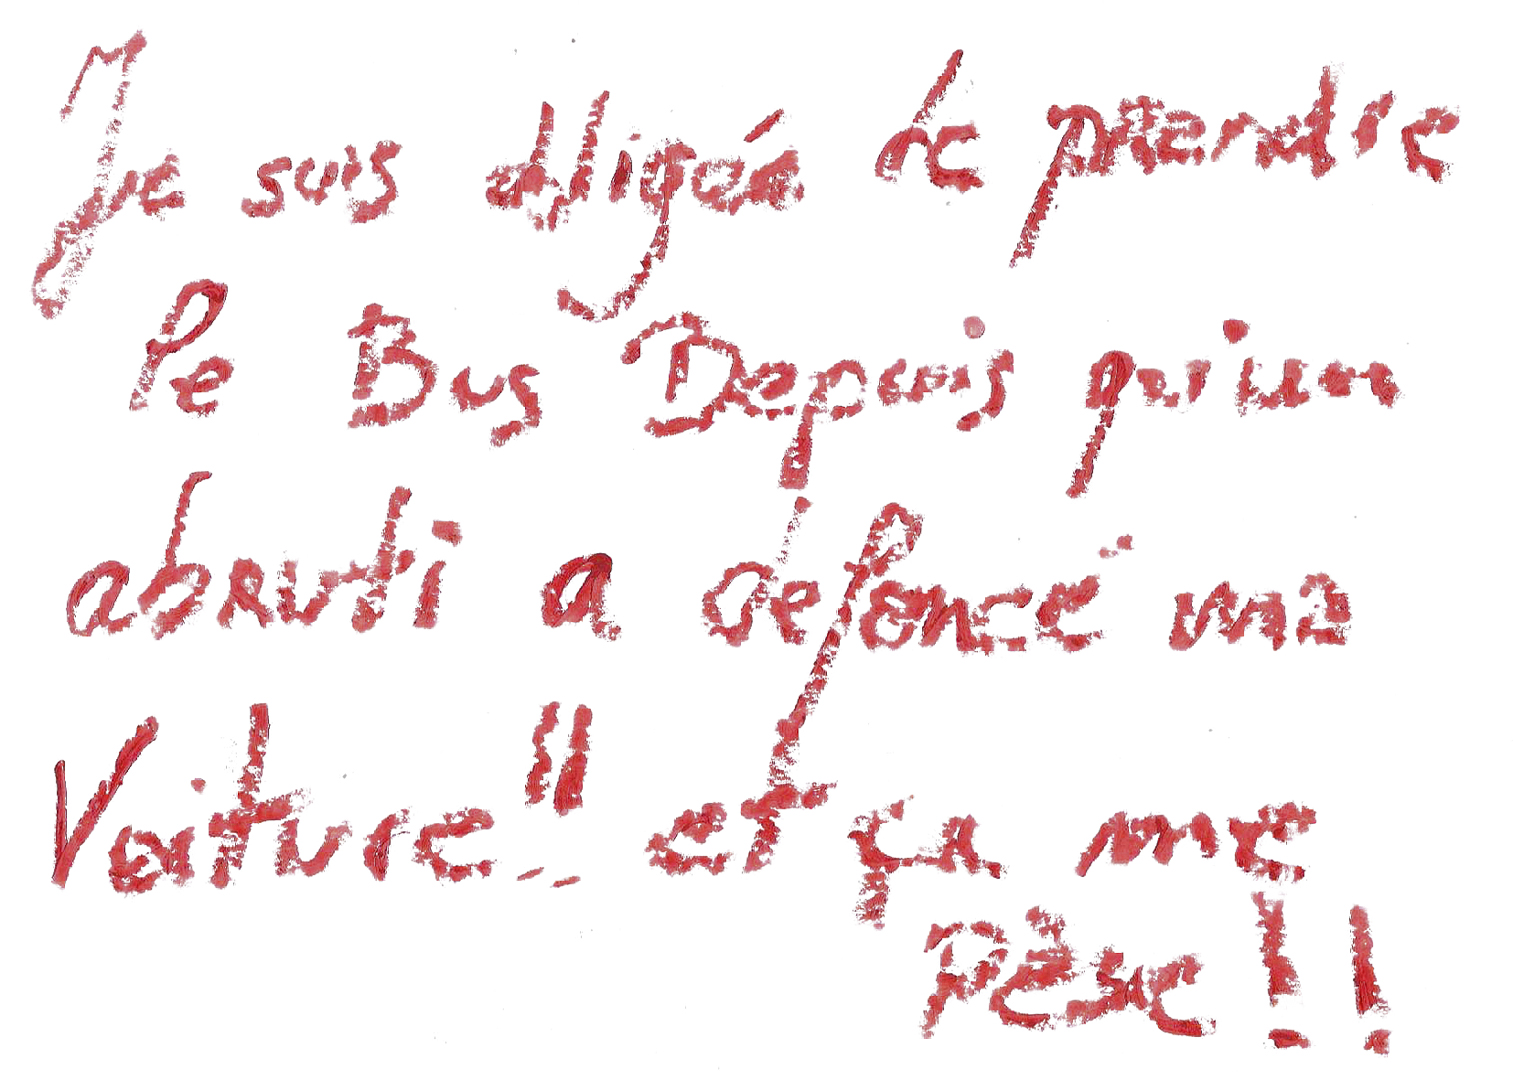 Je suis obligée de prendre
le Bus Depuis qu'un
abruti a défoncé ma
Voiture !! et ça me
Pèse !!